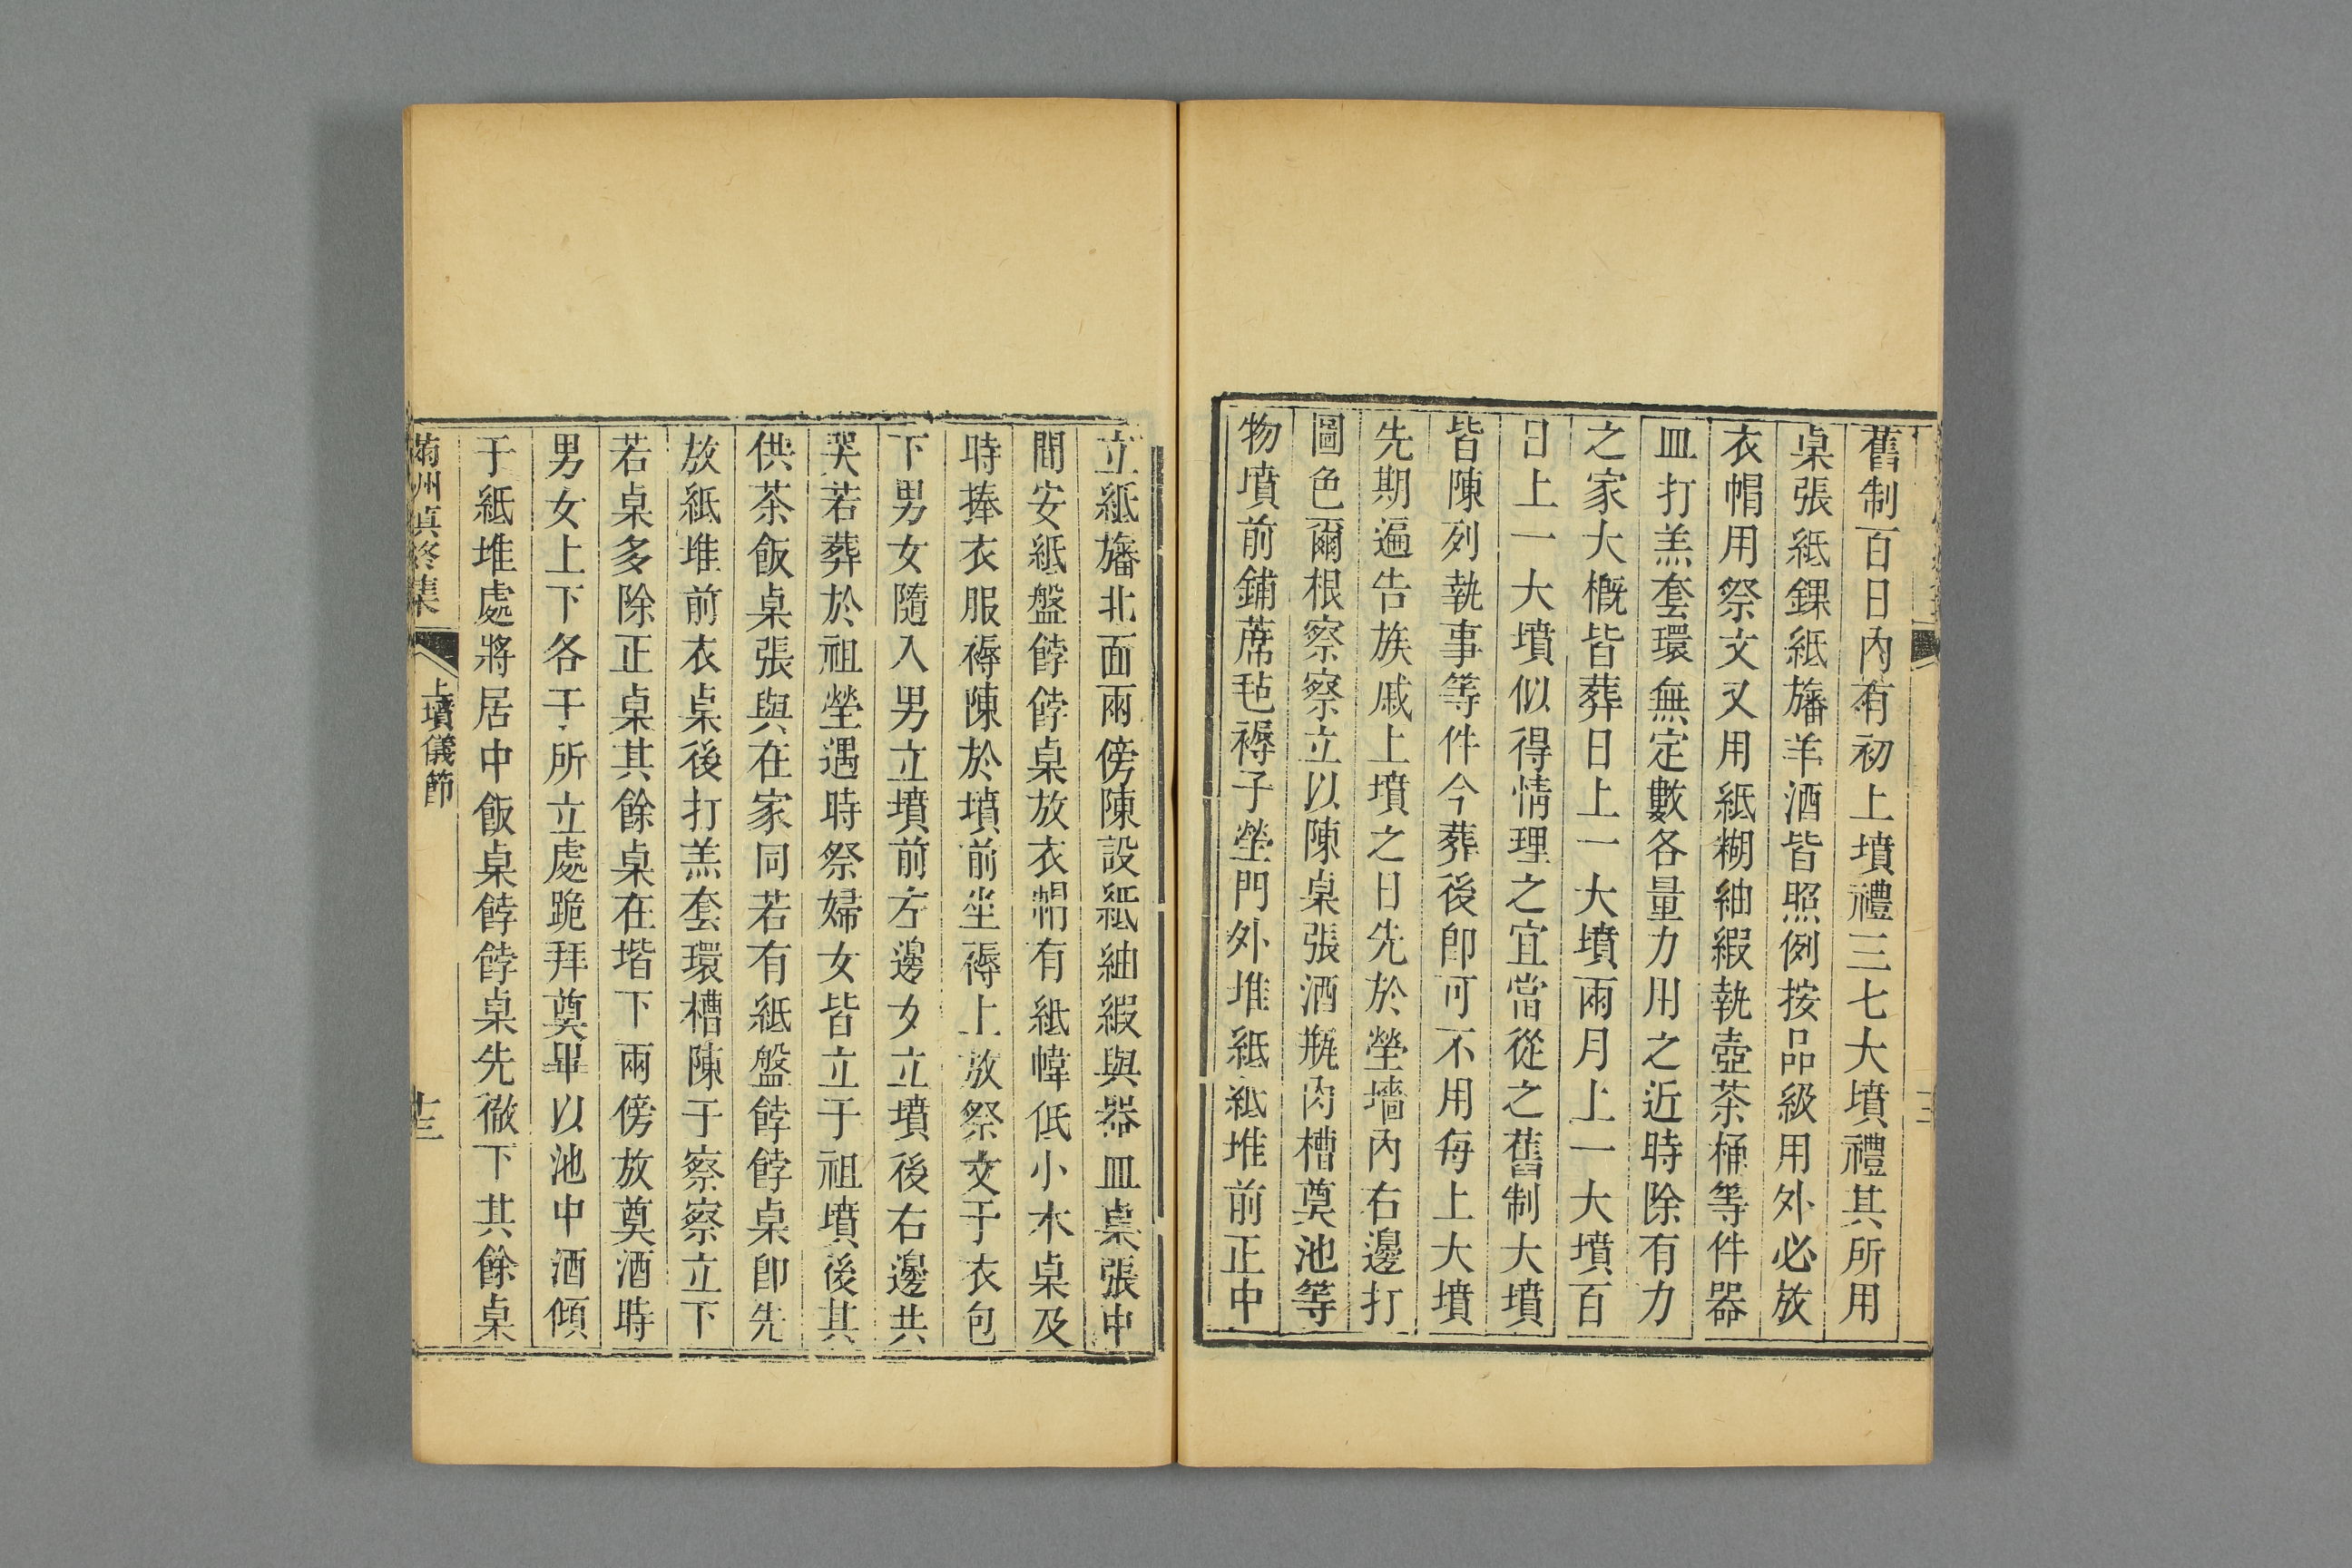 舊制百日內有初上墳禮三七大墳禮其所用
桌張紙錁紙旛羊酒皆照例按品級用外必放
衣帽用祭文又用紙糊紬緞執壺茶桶等件器
皿打羔套環無定數各量力用之近時除有力
之家大槪皆葬日上一大墳兩月上一大墳百
日上一大墳似得情理之宜當從之舊制大墳
皆陳列執事等件今葬後卽可不用每上大墳
先期遍告族戚上墳之日先於塋墻內右邊打
圖色爾根察察立以陳桌張酒瓶肉槽奠池等
物墳前鋪蓆毡褥子塋門外堆紙紙堆前正中
立紙旛北面兩傍陳設紙紬緞與器皿桌張中
間安紙盤餑餑桌放衣帽有紙幃低小木桌及
時捧衣服褥陳於墳前坐褥上放祭文于衣包
下男女隨入男立墳前左邊女立墳後右邊共
哭若葬於祖塋遇時祭婦女皆立于祖墳後其
供茶飯桌張與在家同若有紙盤餑餑桌卽先
放紙堆前衣桌後打羔套環槽陳于察察立下
若桌多除正桌其餘桌在堦下兩傍放奠酒時
男女上下各于所立處跪拜奠畢以池中酒傾
于紙堆處將居中飯桌餑餑桌先徹下其餘桌
滿州慎終集
上墳儀節
十三